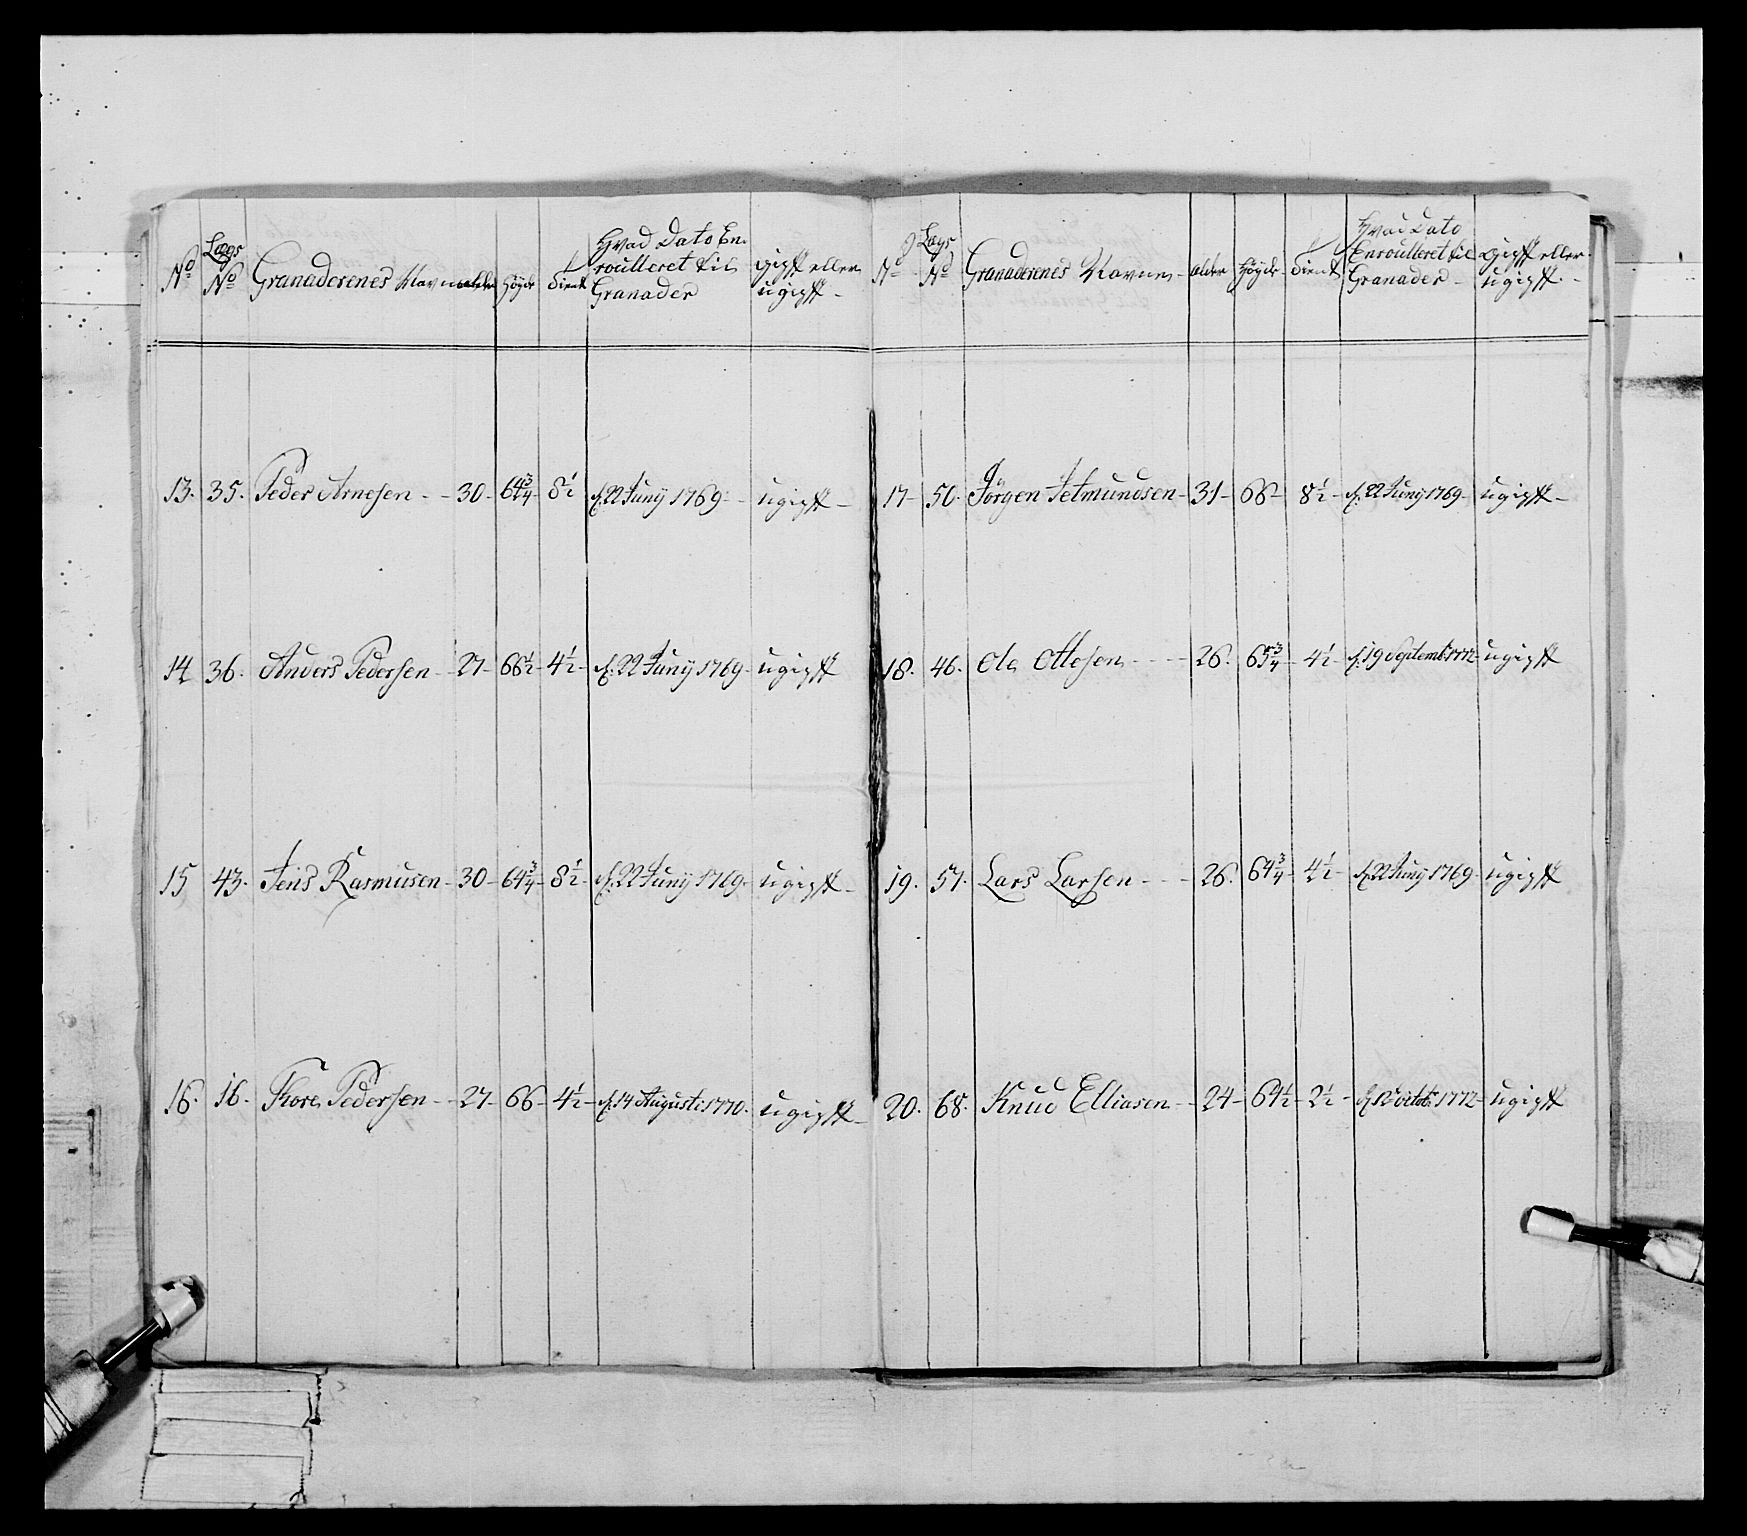 No Lægs No Granaderenes Navne alder Höyde tient Hvad Dato Enroulleret til Granader gift eller ugift
13. 35. Peder Arnesen 30 64 3/4 8 1/2 d. 22 Juny 1769 ugift
14 36. Anders Pedersen 27 66 1/2 4 1/2 d. 22 Juny 1769 ugift
15 43. Jens Rasmusen 30 64 3/4 8 1/2 d. 22 Juny 1769 ugift
16. 16. Thore Pedersen 27 66 4 1/2 d. 14 Augusti 1770. ugift
No Lægs No Granaderenes Navne alder Höyde tient Hvad Dato Enroulleret til Granader gift eller ugift
17 50. Jörgen Jetmundsen 31 66 8 1/2 d. 22 Juny 1769 ugift
18. 46. Ole Ottesen 26. 65 3/4 4 1/2 d. 19 Septembr 1772 ugift
19. 57. Lars Larsen 26. 64 3/4 4 1/2 d. 22 Juny 1769 ugift
20. 68. Knud Elliasen 24 64 1/2 2 1/2 d. 12 octobr 1772 ugift